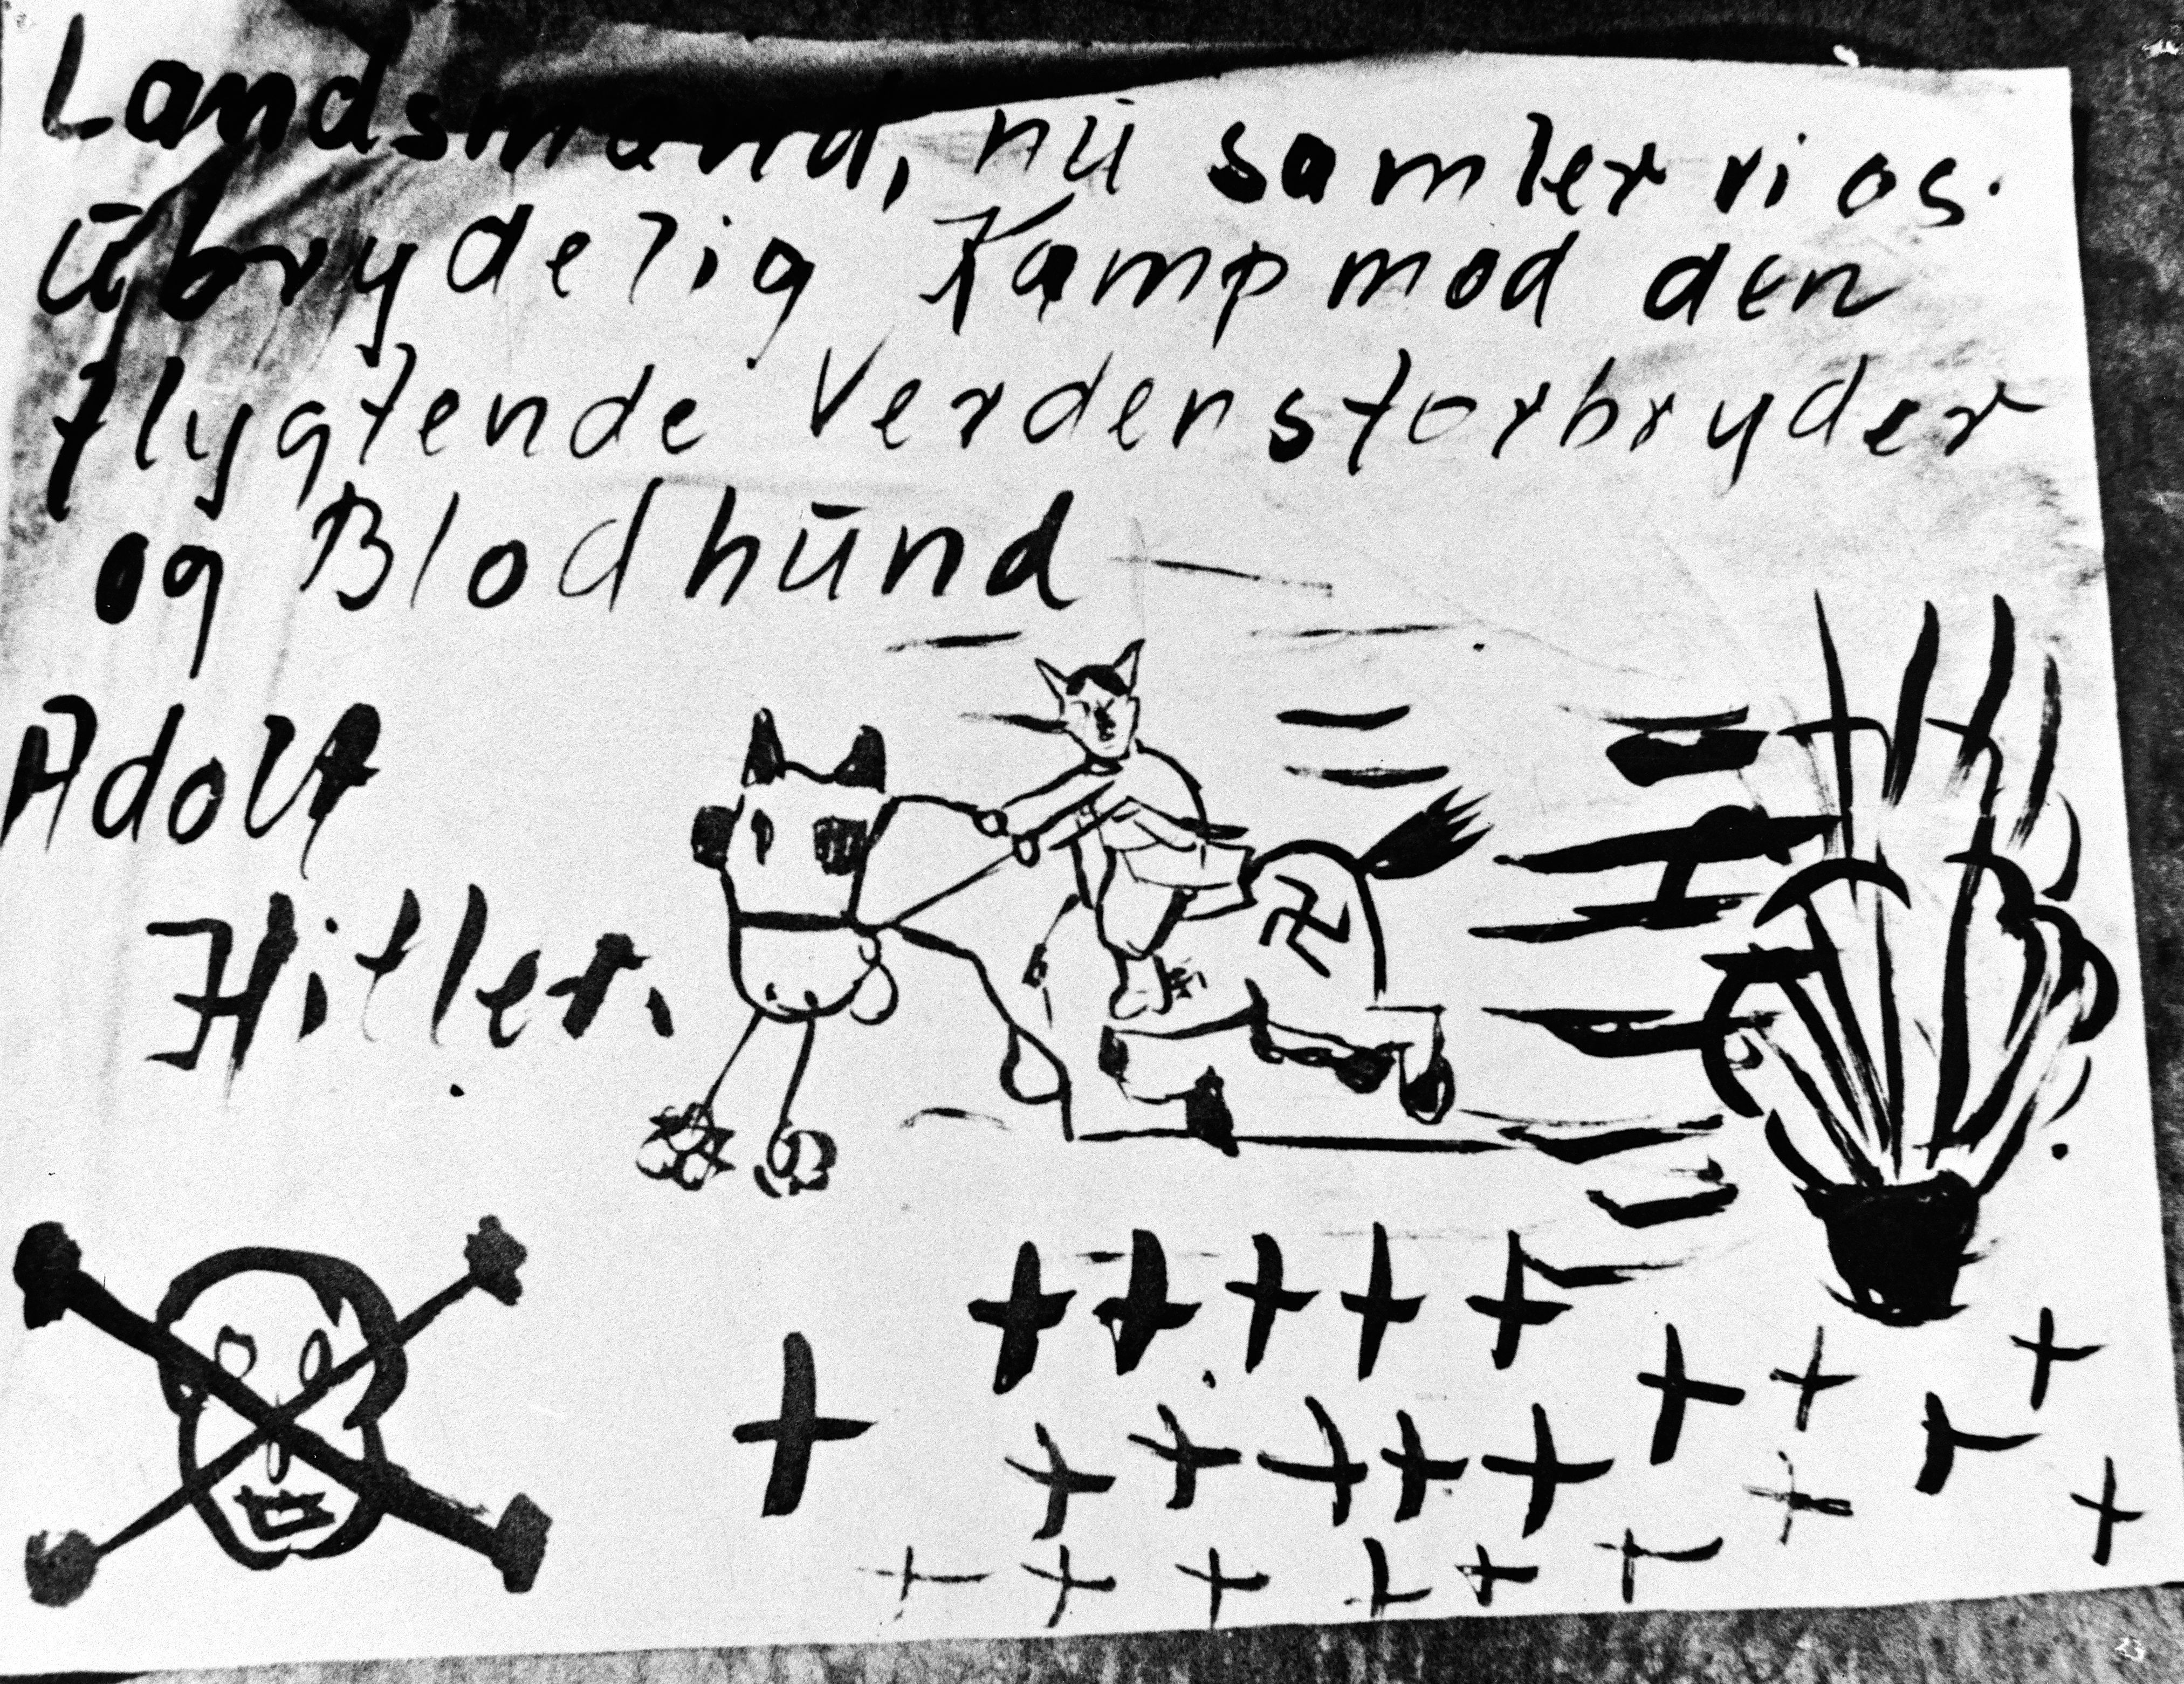 Landsmænd, nū samler vi os.
ūbrydelig Kamp mod den
flygtende Verdensforbryder
og Blodhūnd
Adolf
Hitler.
23